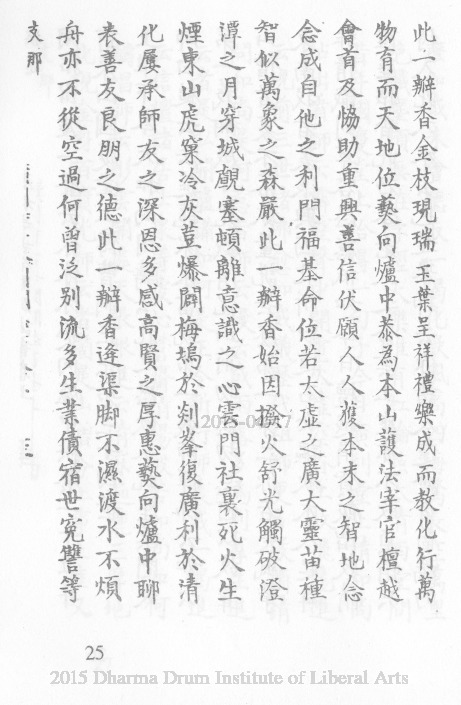 此一瓣香金枝現瑞玉葉呈祥禮樂成而教化行萬
物育而天地位爇向爐中恭為本山護法宰官檀越
會首及恊助重興善信伏願人人獲本末之智地念
念成自他之利門福基命位若太虛之廣大靈苗種
智似萬象之森嚴此一瓣香始因撥火舒光觸破澄
潭之月穿城覷塞頓離意識之心雲門社裏死火生
煙東山虎窠冷灰荳爆闢梅塢於剡峯復廣利於清
化屢承師友之深恩多感高賢之厚惠爇向爐中聊
表善友良朋之德此一瓣香逢渠脚不濕渡水不煩
舟亦不從空過何曾泛別流多生業債宿世寃讐等
支那
25
2015 Dharma Drum Institute of Liberal Arts